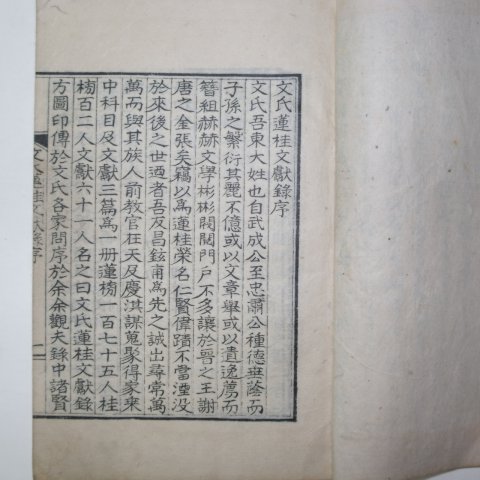 文氏蓮桂文獻錄序
文氏吾東大姓也自武成公至忠肅公種德垂蔭而
子孫之繁衍其麗不億或以文章舉或以遺逸薦而
簪組赫赫文學彬彬閥閱門戶不多讓於晉之王謝
唐之金張矣竊以爲蓮桂榮名仁賢偉蹟不當湮没
於來後之世過者吾友昌鉉甫爲先之誠出尋常萬
萬而與其族人前教官在天及慶淇謀蒐聚得家來
中科目及文獻三篇爲一册蓮榜一百七十五人桂
榜百二人文獻六十一人名之曰文氏蓮桂文獻錄
方圖印傳於文氏各家問序於余余觀夫錄中諸賢